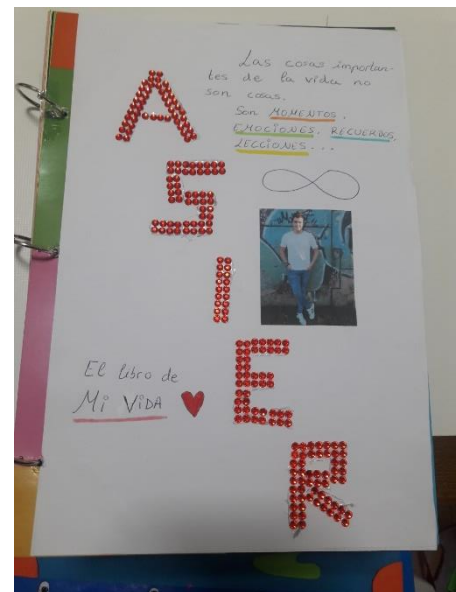 Las cosas importan-
tes de la vida no
son cosas.
Son MOMENTOS,
EMOCIONES, RECUERDOS,
LECCIONES...
ASIER
El libro de
Mi VIDA